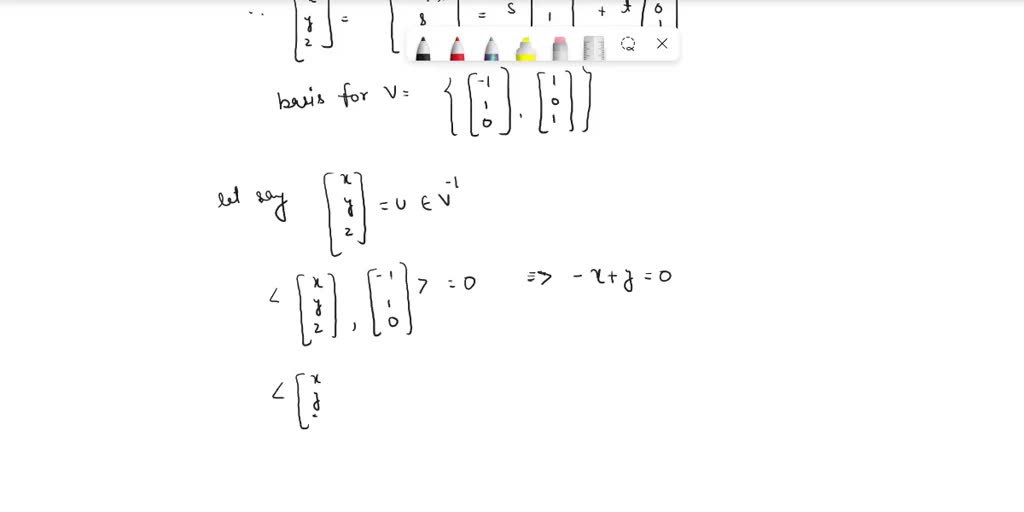 ∴ [ y 2 ] = [ s ] = s [ 1 ] + t [ 0 1 ]
basis for V = { [ -1 1 0 ] , [ 1 0 1 ] }
let say [ x y 2 ] = u ∈ V^-1
< [ x y 2 ] , [ -1 1 0 ] > = 0 => -x + y = 0
< [ x y